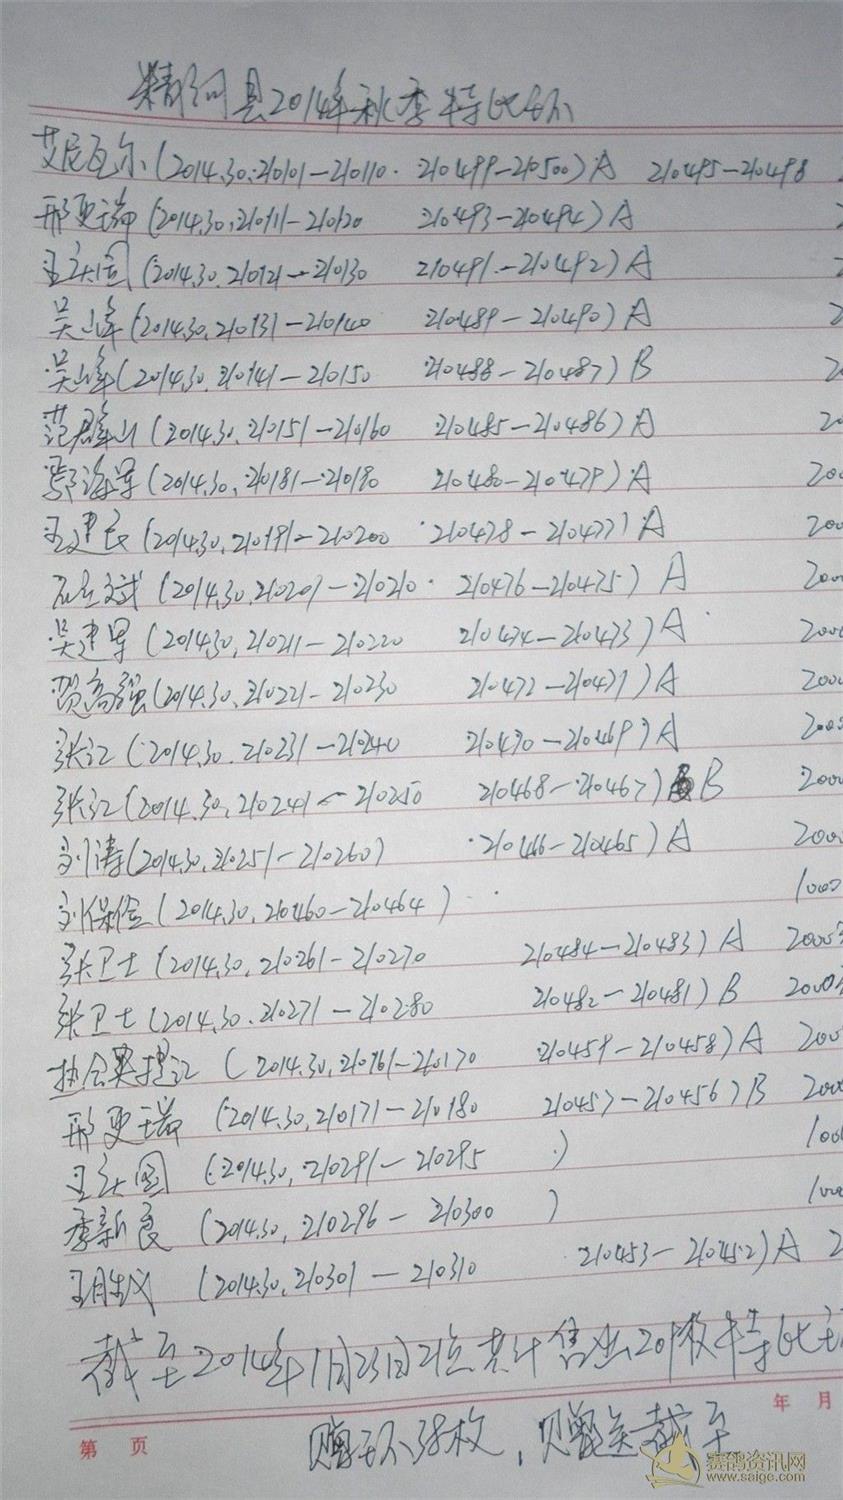 精河县2014年秋季特比环
艾尼瓦尔(2014.30.210101-210110. 210499-210500)A 210495-210498
邢更瑞(2014.30.210111-210120 210493-210494)A
王兴国(2014.30.210121-210130 210491-210492)A
吴峰(2014.30.210131-210140 210489-210490)A
吴峰(2014.30.210141-210150 210488-210487)B
范群山(2014.30.210151-210160 210485-210486)A
鄢海军(2014.30.210181-210190 210480-210479)A
王建民(2014.30.210191-210200 210478-210477)A
(2014.30.210201-210210. 210476-210475)A 2000
吴建军(2014.30.210211-210220 210474-210473)A 2000
贺高强(2014.30.210221-210230 210472-210471)A 2000
张江(2014.30.210231-210240 210470-210469)A 2000
张江(2014.30.210241-210250 210468-210467)B 2000
刘涛(2014.30.210251-210260) 210466-210465)A 2000
刘保俭(2014.30.210460-210464) 1000
张卫士(2014.30.210261-210270 210484-210483)A 2000
张卫士(2014.30.210271-210280 210482-210481)B 2000
协会奥捷江(2014.30.210161-210170 210459-210458)A 200
邢更瑞(2014.30.210171-210180 210457-210456)B 200
王兴国(2014.30.210291-210295 ) 100
李新良(2014.30.210296-210300 ) 100
王胜义(2014.30.210301-210310 210453-210452)A 2
截至2014年11月23日21点共计售出201枚特比环
赠环38枚,赠送截至
年 月
第 页
赛鸽资讯网
www.saige.com